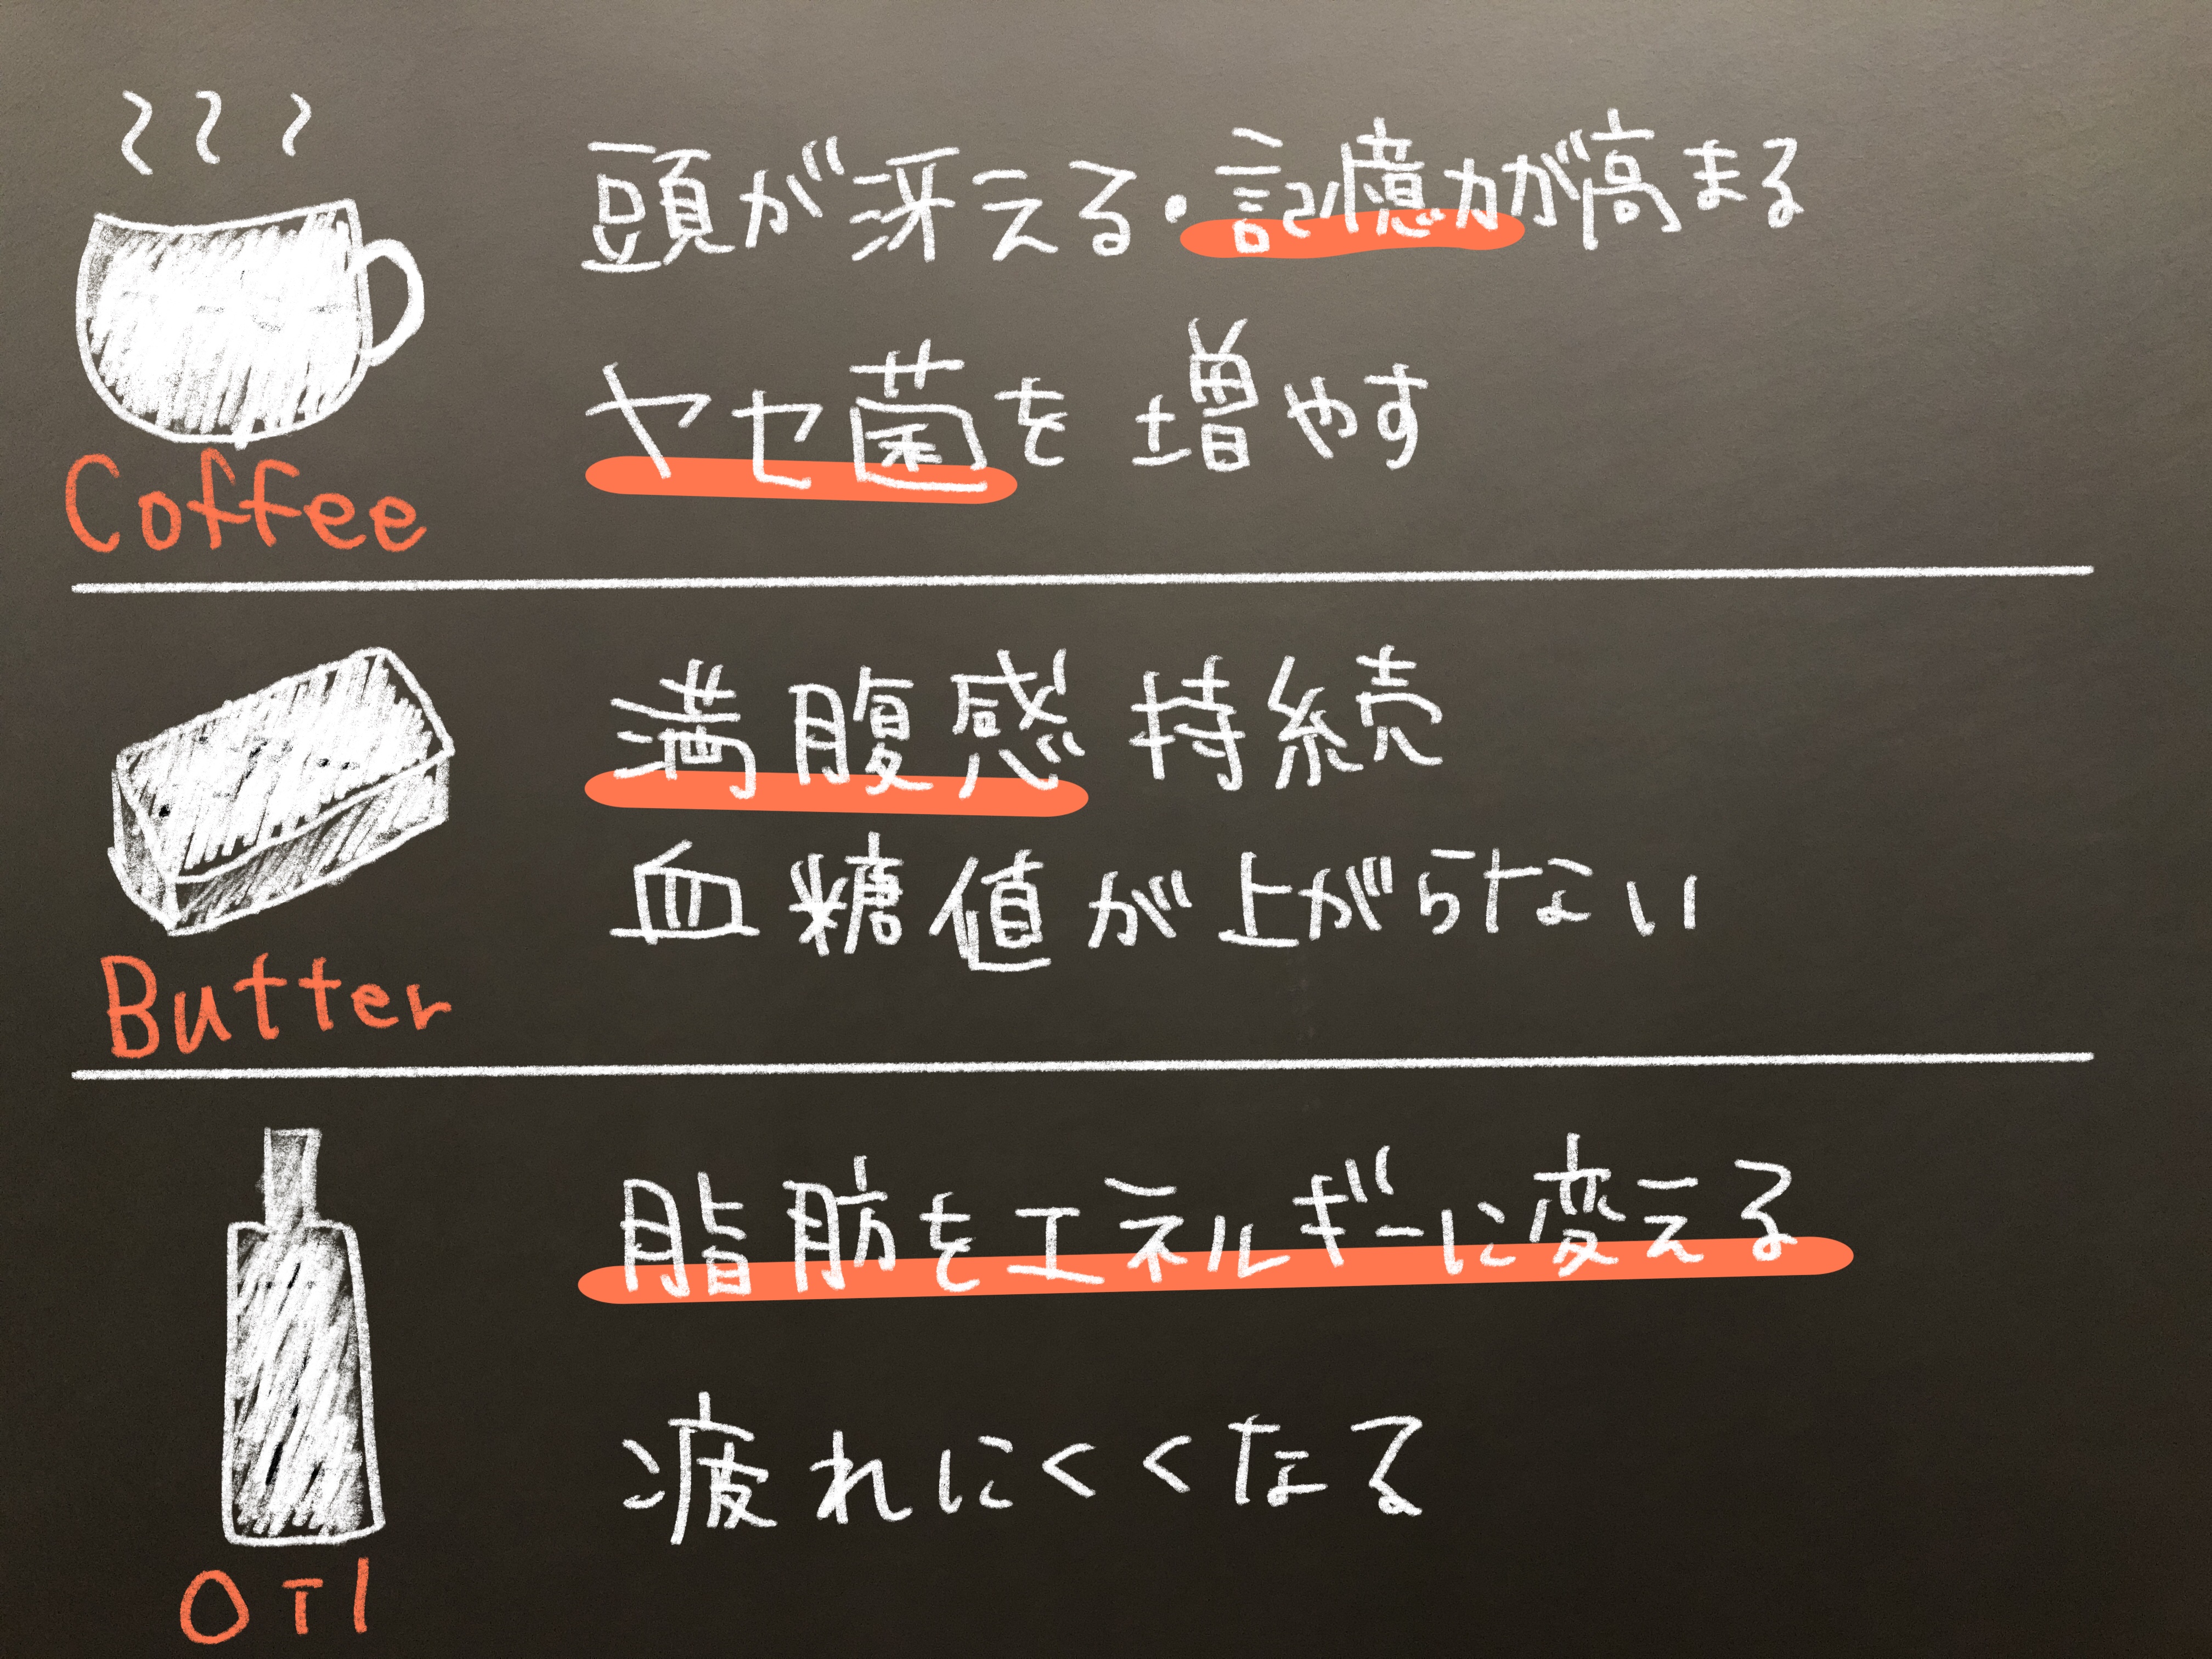 頭が冴える・記憶力が高まる
ヤセ菌を増やす
Coffee
満腹感持続
血糖値が上がらない
Butter
脂肪をエネルギーに変える
疲れにくくなる
OIl